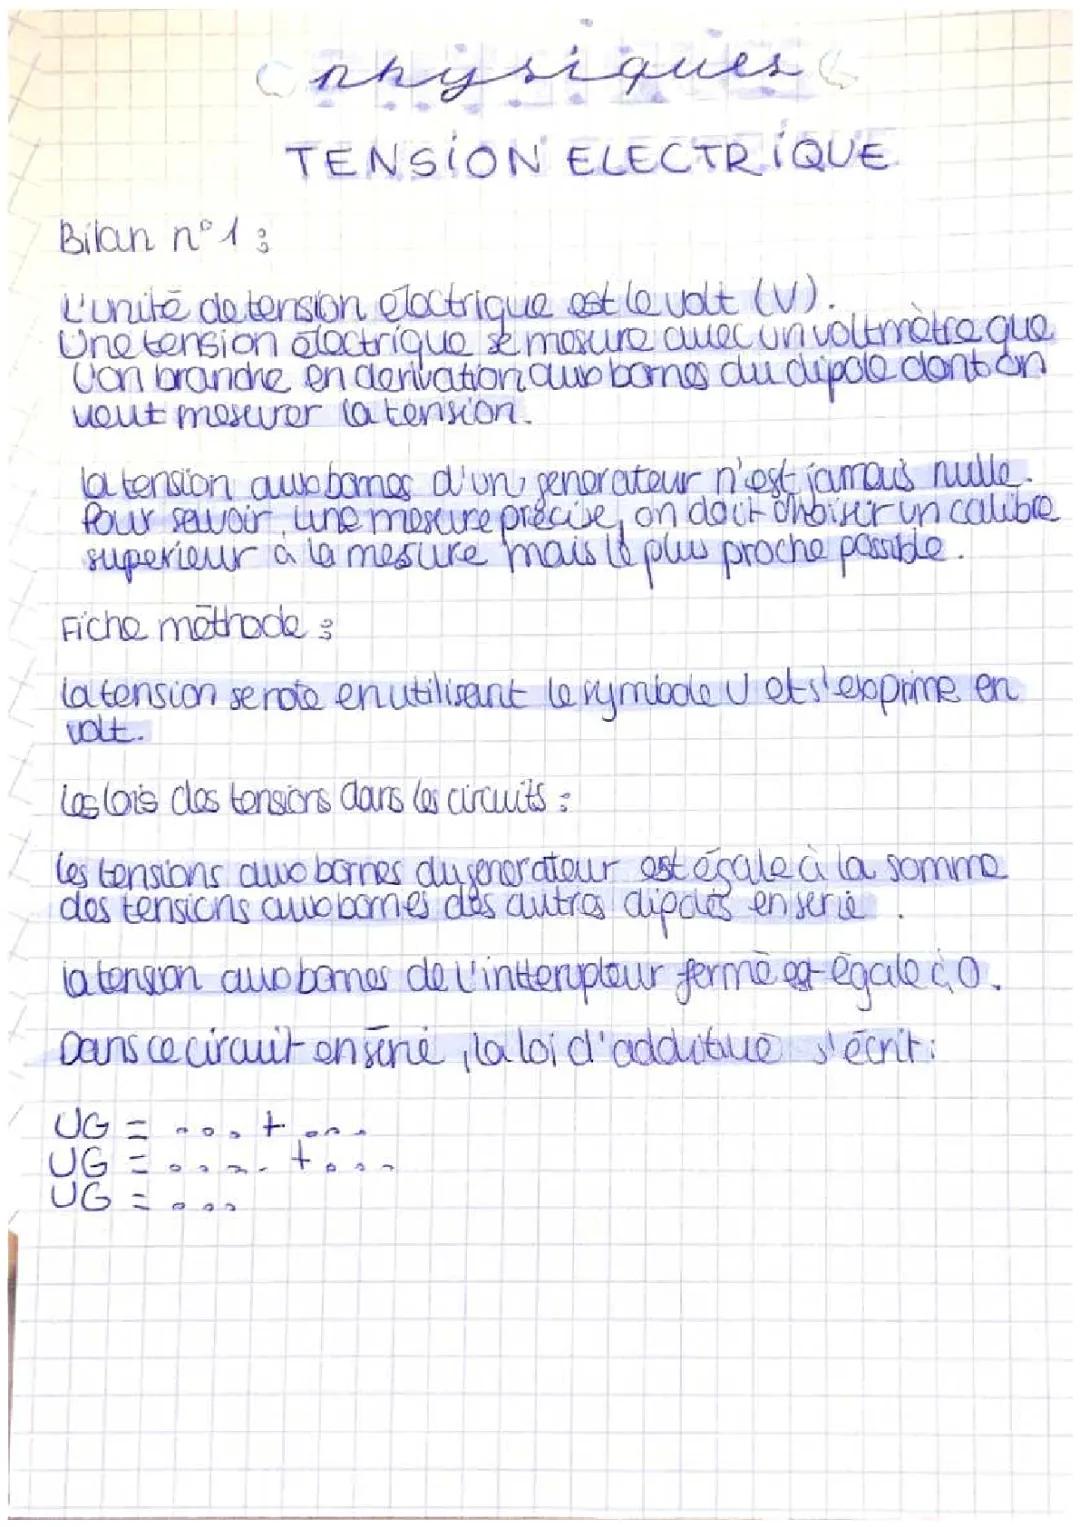 physiques
TENSION ELECTRIQUE
Bilan n°1 :
L'unité de tension électrique est le volt (V).
Une tension électrique se mesure avec un voltmètre que
l'on branche en derivation aux bornes du dipole dont on
veut mesurer la tension.
la tension aux bornes d'un generateur n'est jamais nulle.
Pour savoir une mesure précise, on doit choisir un calibre
superieur à la mesure mais le plus proche possible.
Fiche méthode :
la tension se note en utilisant le symbole U et s'exprime en
volt.
Les lois des tensions dans les circuits :
les tensions aux bornes du generateur est égale à la somme
des tensions aux bornes des autres dipoles en serie.
la tension aux bornes de l'interupteur fermé est égale à 0.
Dans ce circuit en série, la loi d'additive s'écrit :
UG = .... + ....
UG = .... + ....
UG = ....